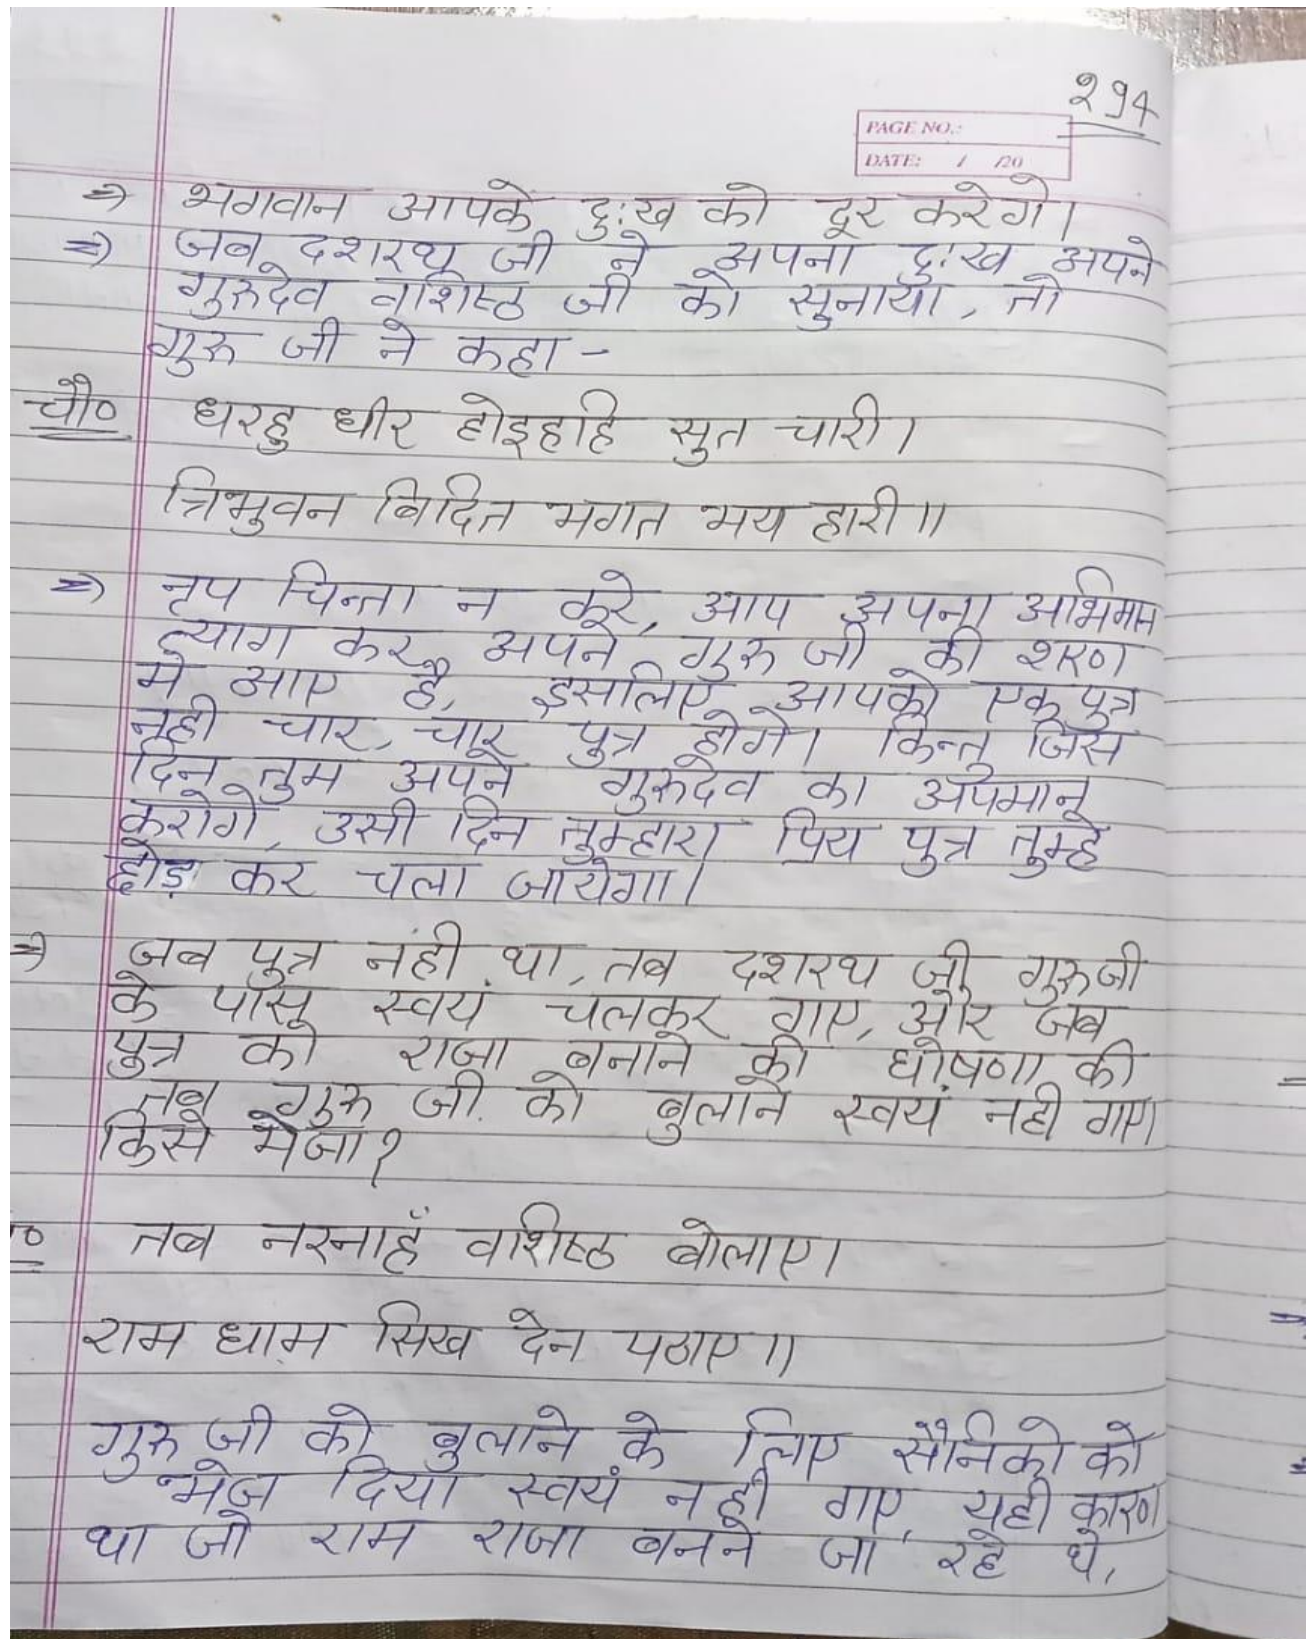 २१५
PAGE NO.:
DATE: / /20
⇒ भगवान आपके दुःख को दूर करेगे।
⇒ जब दशरथ जी ने अपना दुःख अपने
गुरुदेव वशिष्ठ जी को सुनाया, तो
गुरु जी ने कहा -
चौ० धरहु धीर होइहहि सुत चारी।
त्रिभुवन बिदित भगत भय हारी॥
⇒ नृप चिन्ता न करे, आप अपना अभिमान
त्याग कर अपने गुरु जी की शरण
मे आए है, इसलिए आपको एक पुत्र
नही चार, चार पुत्र होगे। किन्तु जिस
दिन तुम अपने गुरुदेव का अपमान
करोगे, उसी दिन तुम्हारा प्रिय पुत्र तुम्हे
छोड़ कर चला जायेगा।
⇒ जब पुत्र नही था, तब दशरथ जी गुरुजी
के पास स्वयं चलकर गए, और जब
पुत्र को राजा बनाने की घोषणा की
तब गुरु जी को बुलाने स्वयं नही गए।
किसे भेजा?
तब नरनाहँ वशिष्ठ बोलाए।
राम धाम सिख देन पठाए॥
गुरु जी को बुलाने के लिए सैनिको को
भेज दिया स्वयं नही गए, यही कारण
था जो राम राजा बनने जा रहे थे,